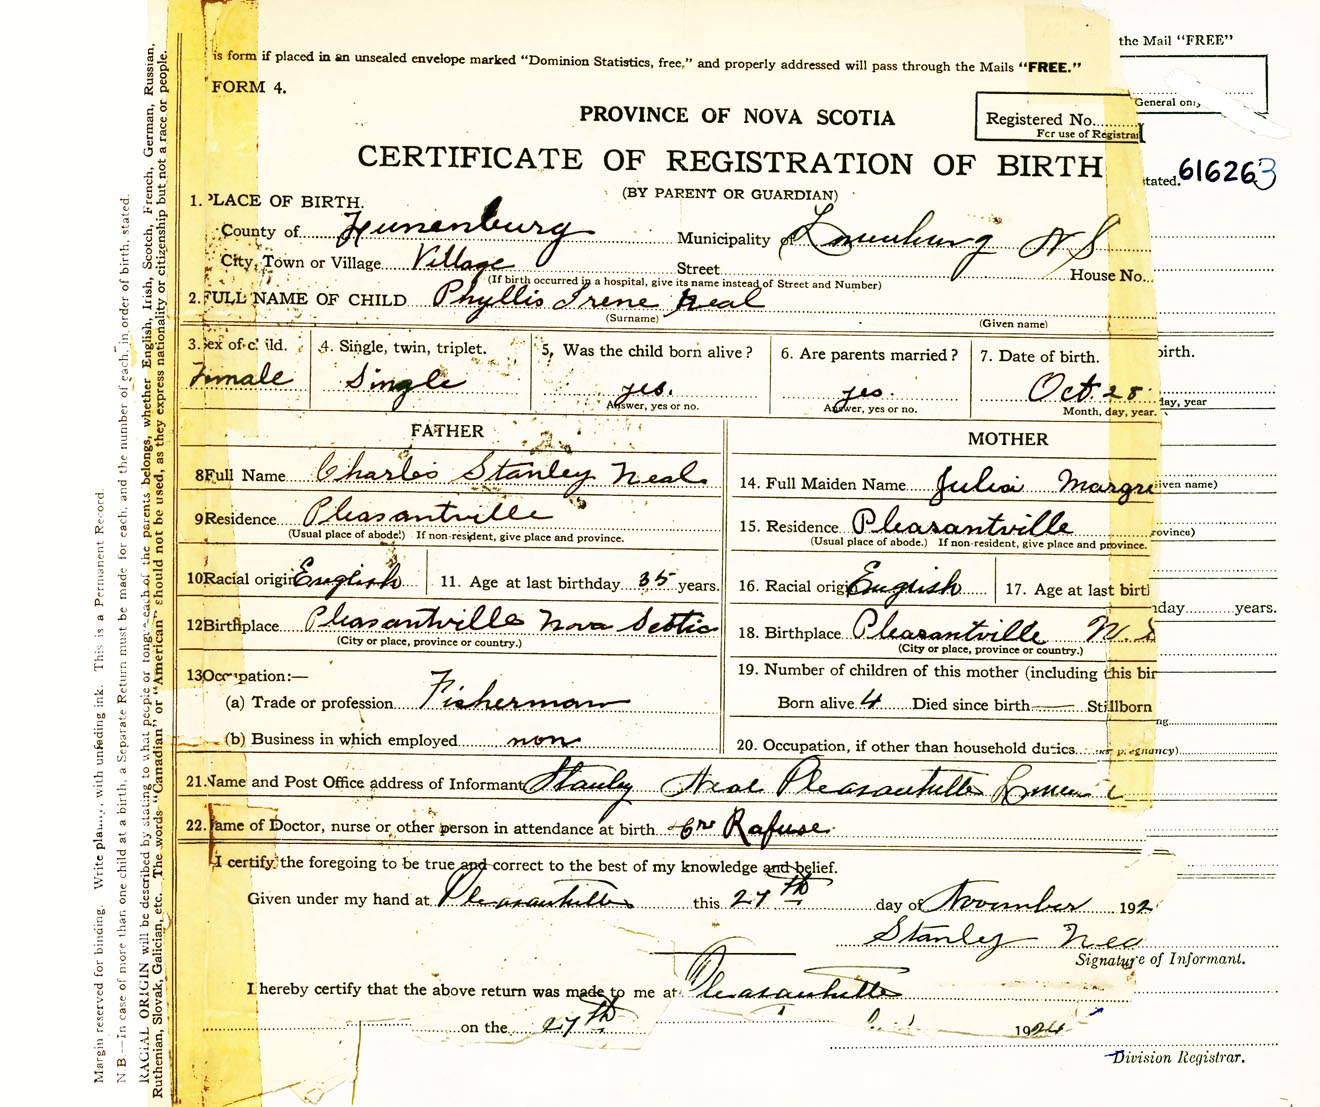 the Mail "FREE"
is form if placed in an unsealed envelope marked "Dominion Statistics, free," and properly addressed will pass through the Mails "FREE."
FORM 4.
General only
PROVINCE OF NOVA SCOTIA
Registered No.
For use of Registrar
CERTIFICATE OF REGISTRATION OF BIRTH
stated. 616263
(BY PARENT OR GUARDIAN)
1. PLACE OF BIRTH.
County of Lunenburg Municipality of Lunenburg N S
City, Town or Village Village Street House No.
(If birth occurred in a hospital, give its name instead of Street and Number)
2. FULL NAME OF CHILD Phyllis Irene Neal
(Surname) (Given name)
3. Sex of child. 4. Single, twin, triplet. 5, Was the child born alive? 6. Are parents married? 7. Date of birth. birth.
Female Single yes. yes. Oct. 28
Answer, yes or no. Answer, yes or no. Month, day, year. day, year
FATHER MOTHER
8 Full Name Charles Stanley Neal 14. Full Maiden Name Julia Margre iven name)
9 Residence Pleasantville 15. Residence Pleasantville rovince)
(Usual place of abode.) If non-resident, give place and province. (Usual place of abode.) If non-resident, give place and province.
10 Racial origin English 11. Age at last birthday 35 years. 16. Racial origin English 17. Age at last birt
hday years.
12 Birthplace Pleasantville Nova Scotia 18. Birthplace Pleasantville N. S
(City or place, province or country.) (City or place, province or country.)
13 Occupation:— 19. Number of children of this mother (including this bir
(a) Trade or profession Fisherman Born alive 4 Died since birth Stillborn
ng.
(b) Business in which employed non 20. Occupation, if other than household duties. pregnancy)
21. Name and Post Office address of Informant Stanley Neal Pleasantville
22. Name of Doctor, nurse or other person in attendance at birth. Rafuse
I certify the foregoing to be true and correct to the best of my knowledge and belief.
Given under my hand at Pleasantville this 27th day of November 192
Stanley Nea
Signature of Informant.
I hereby certify that the above return was made to me at Pleasantville
on the 27th 1924
Division Registrar.
Margin reserved for binding. Write plainly, with unfading ink. This is a Permanent Record.
N.B.—In case of more than one child at a birth, a Separate Return must be made for each, and the number of each, in order of birth, stated.
RACIAL ORIGIN will be described by stating to what people or tongue each of the parents belongs, whether English, Irish, Scotch, French, German, Russian,
Ruthenian, Slovak, Galician, etc. The words "Canadian" or "American" should not be used, as they express nationality or citizenship but not a race or people.